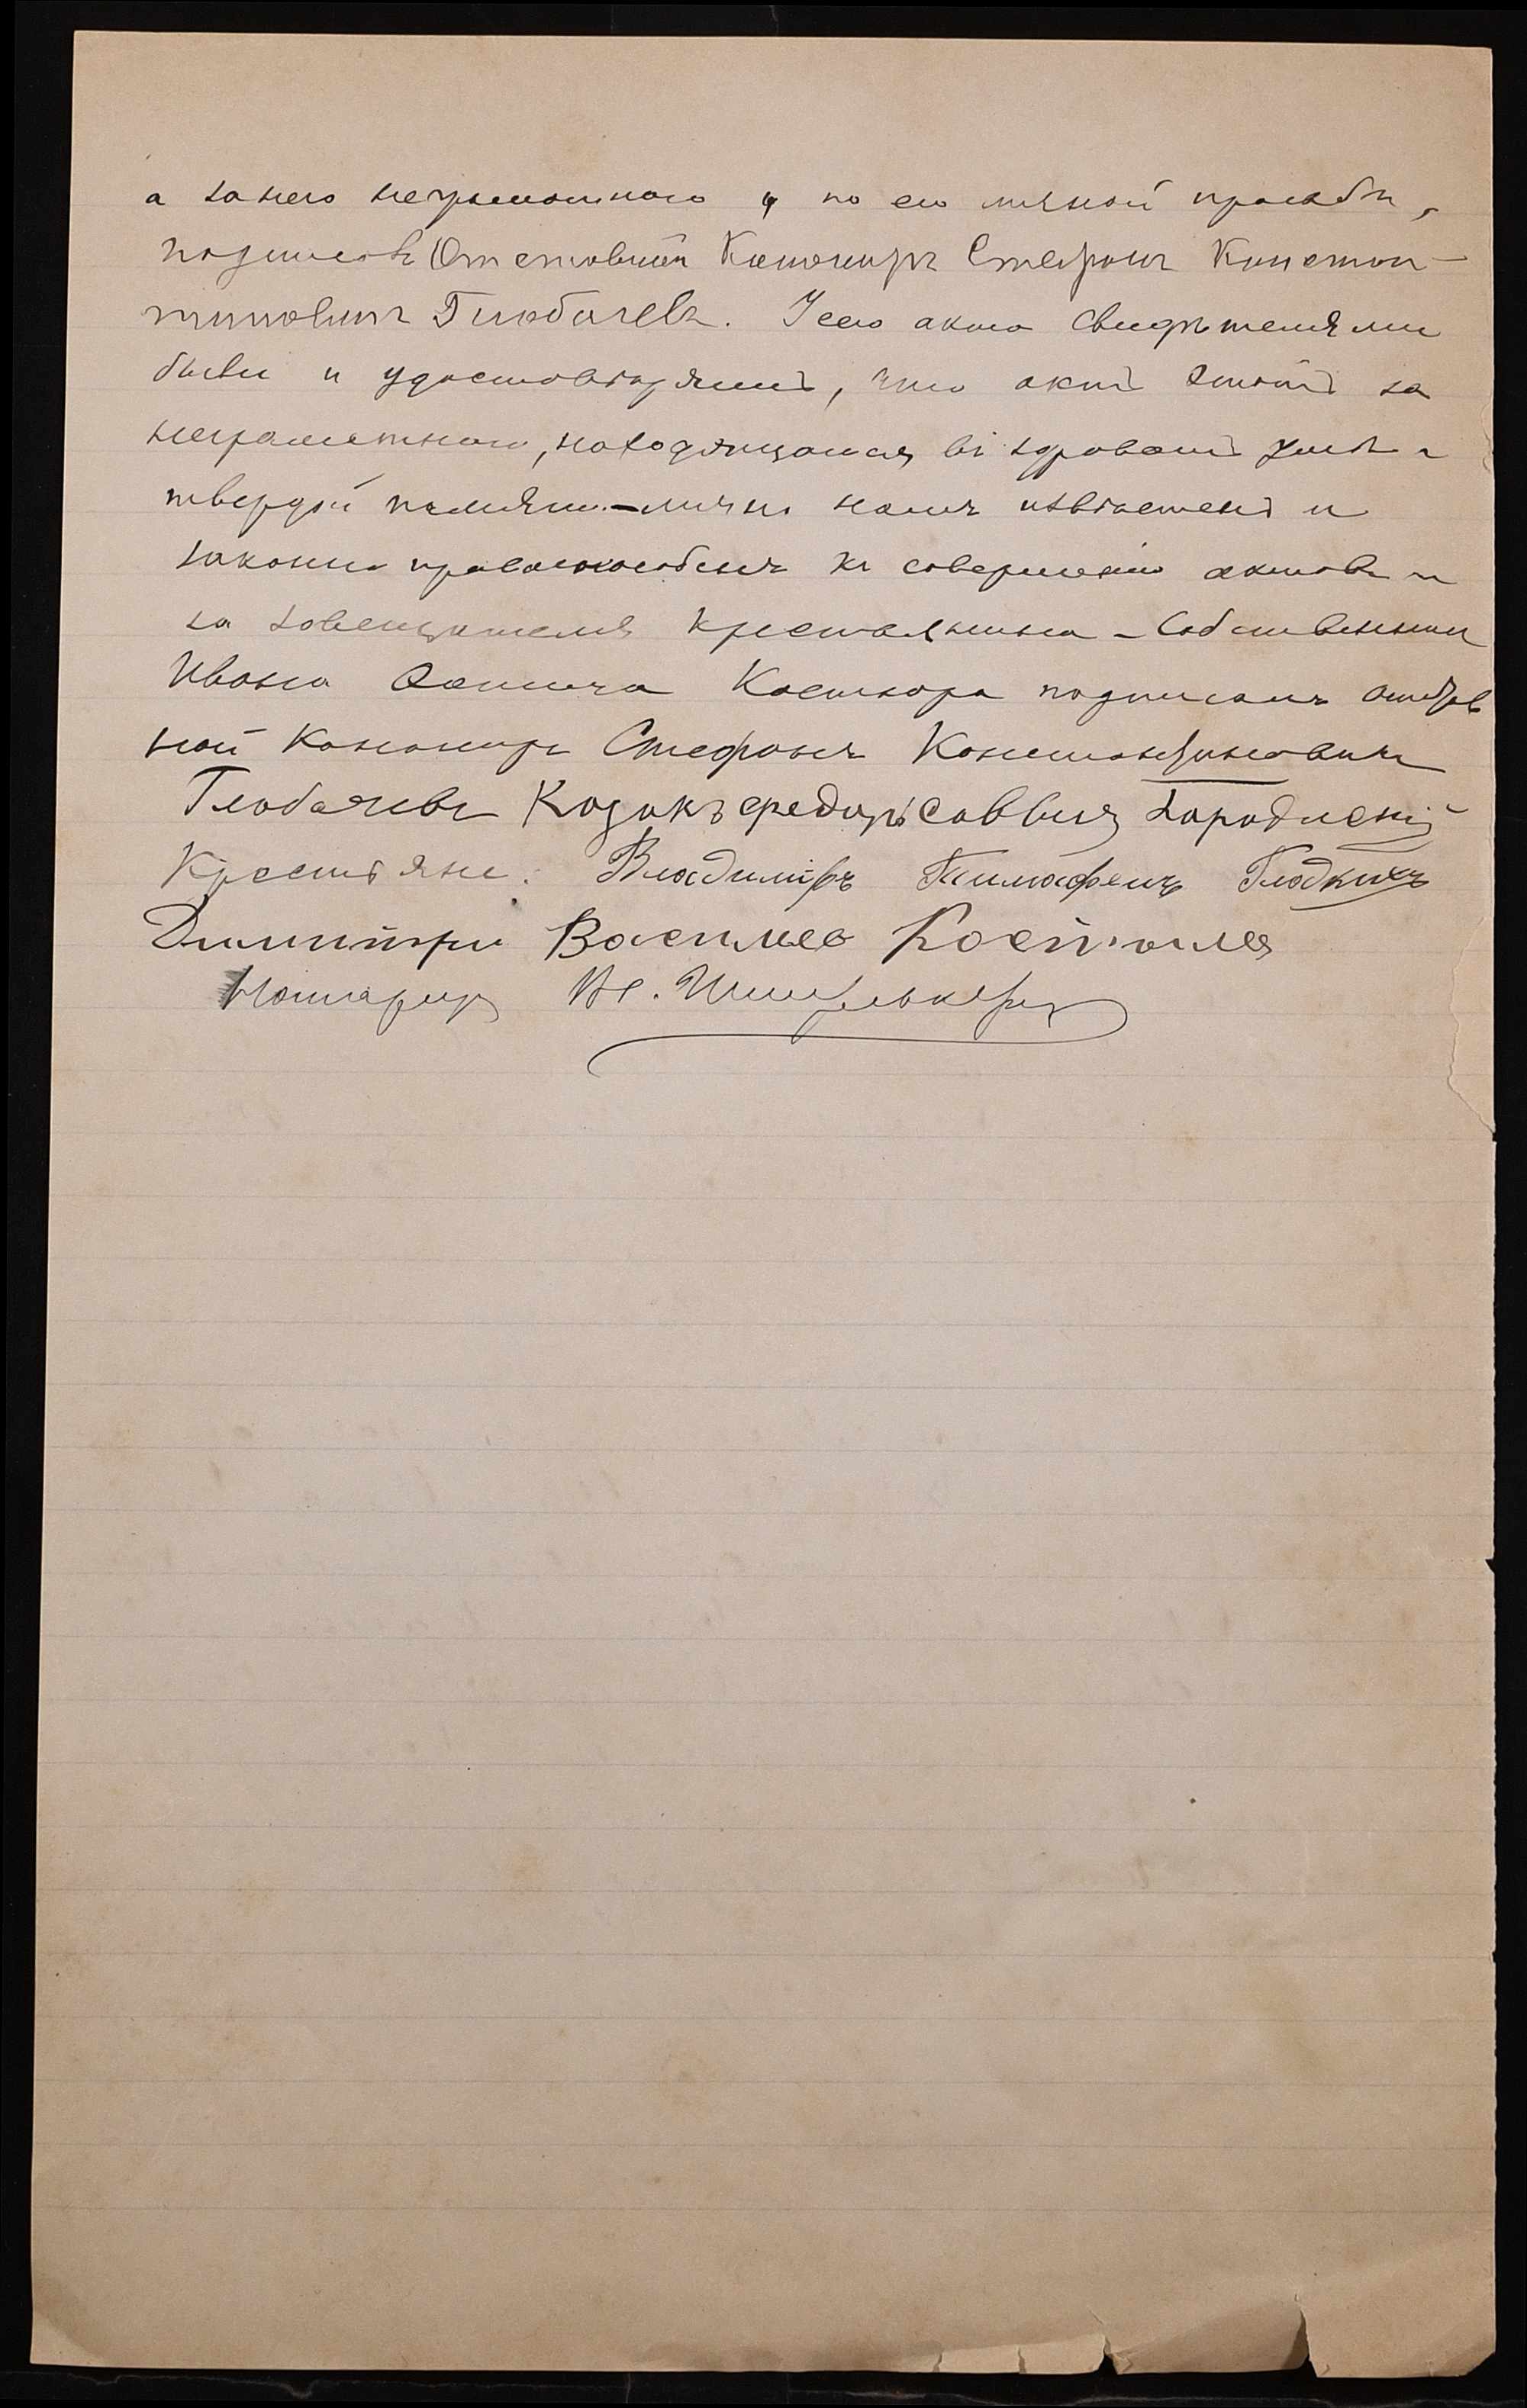 а за него неграмотного и по его личной просьбѣ,
подписавъ Отставной Канониръ Стефанъ Констан-
тиновичъ Глобачевъ. У сего акта свидѣтелями
были и удостовѣряемъ, что актъ этотъ за
неграмотнаго, находящагося въ здравомъ умѣ и
твердой памяти – лично намъ извѣстенъ и
законно правоспособенъ къ совершенію актовъ и
за завещателя крестьянина – собственника
Ивана Косткора подписалъ отстав
ной Канониръ Стефанъ Константиновичъ
Глобачевъ Козакъ Федоръ Саввичъ
Крестьяне: Владиміръ Тимофеичъ Гладкихъ
Димитри Василев
Нотаріусъ